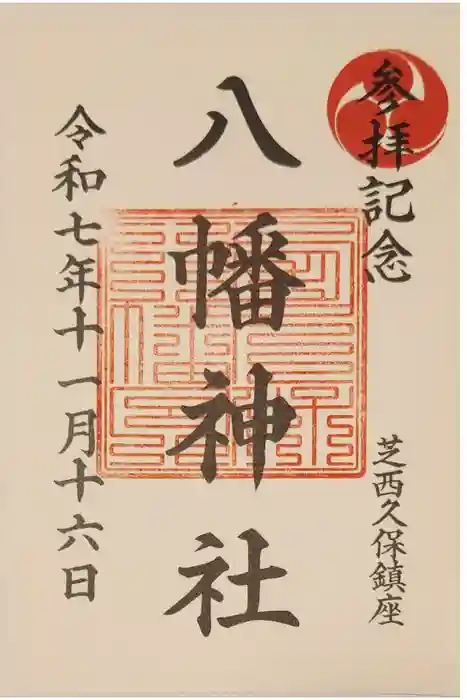 参拝記念
芝西久保鎮座
八幡神社
令和七年十一月十六日